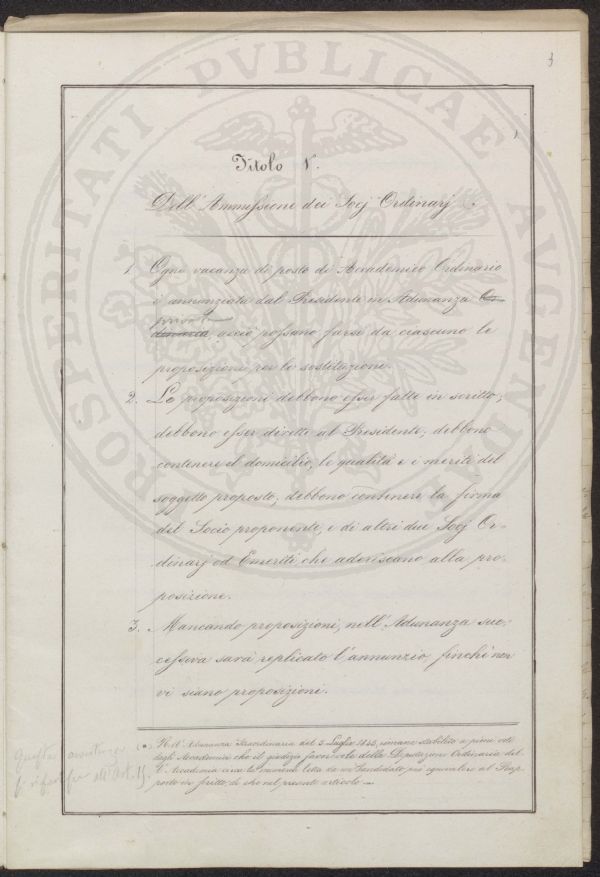 3
PROSPERITATI PVBLICAE AVGENDAE
Titolo V.
Dell'Ammessione dei Socj Ordinarj.
1. Ogni vacanza di posto di Accademico Ordinario
è annunziata dal Presidente in Adunanza Or-
privata
dinaria, acciò possano farsi da ciascuno le
proposizioni per la sostituzione.
2. Le proposizioni debbono esser fatte in scritto;
debbono esser dirette al Presidente; debbono
contenere il domicilio, le qualità e i meriti del
soggetto proposto; debbono contenere la firma
del Socio proponente, e di altri due Socj Or-
dinarj od Emeriti che aderiscano alla pro-
posizione.
3. Mancando proposizioni, nell'Adunanza suc-
cessiva sarà replicato l'annunzio finchè non
vi siano proposizioni.
(a) Nell'Adunanza Straordinaria del 5 Luglio 1843, rimane stabilito a pieni voti
degli Accademici che il giudizio favorevole della Deputazione Ordinaria del-
l'Accademia circa la memoria letta da un Candidato, può equivalere al Rap-
porto in scritto, di che nel presente articolo.
Questa avvertenza
si riferisce all'Art. 15.